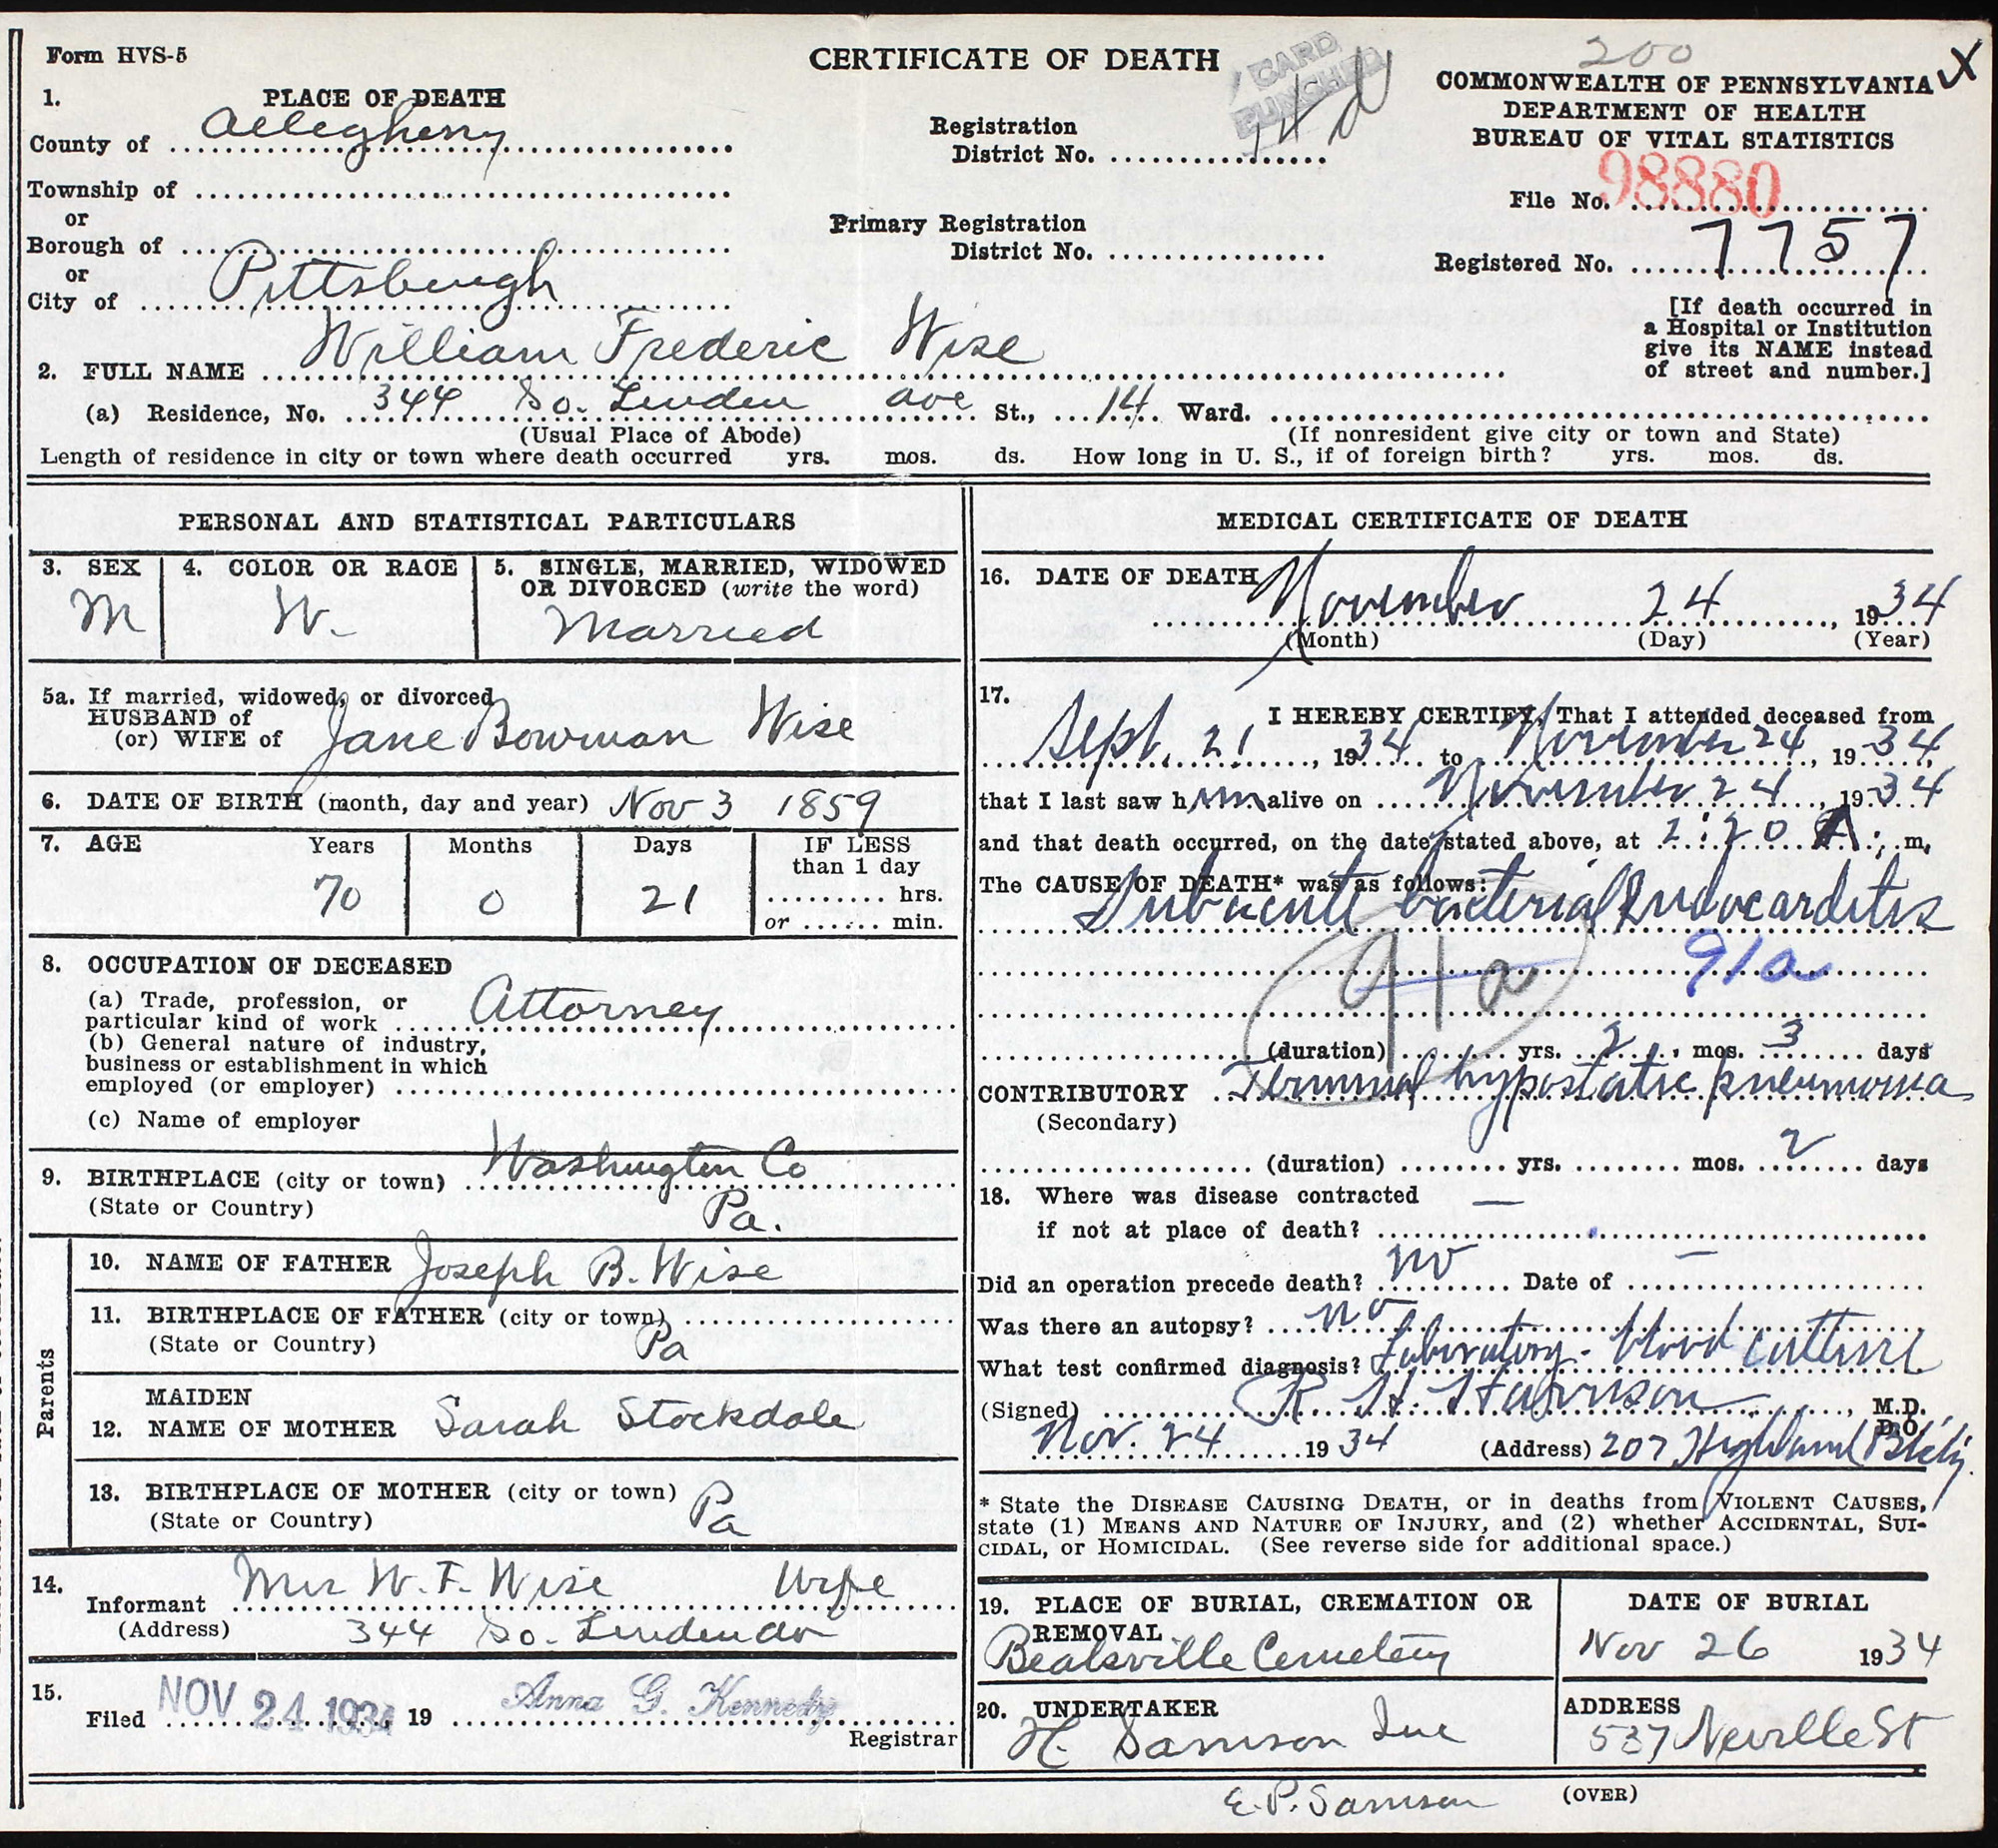 Form HVS-5
CERTIFICATE OF DEATH
200
X
CARD PUNCHED
COMMONWEALTH OF PENNSYLVANIA
DEPARTMENT OF HEALTH
BUREAU OF VITAL STATISTICS
1. PLACE OF DEATH
County of Allegheny
Registration
District No.
Township of
or
Borough of
or
City of Pittsburgh
Primary Registration
District No.
File No. 98880
Registered No. 7757
[If death occurred in
a Hospital or Institution
give its NAME instead
of street and number.]
2. FULL NAME William Frederic Wise
(a) Residence, No. 344 So. Linden ave St., 14 Ward.
(Usual Place of Abode) (If nonresident give city or town and State)
Length of residence in city or town where death occurred yrs. mos. ds. How long in U. S., if of foreign birth? yrs. mos. ds.
PERSONAL AND STATISTICAL PARTICULARS
3. SEX
M
4. COLOR OR RACE
W
5. SINGLE, MARRIED, WIDOWED
OR DIVORCED (write the word)
Married
5a. If married, widowed, or divorced
HUSBAND of
(or) WIFE of Jane Bowman Wise
6. DATE OF BIRTH (month, day and year) Nov 3 1859
7. AGE Years Months Days IF LESS
than 1 day
70 0 21 hrs.
or min.
8. OCCUPATION OF DECEASED
(a) Trade, profession, or
particular kind of work Attorney
(b) General nature of industry,
business or establishment in which
employed (or employer)
(c) Name of employer
9. BIRTHPLACE (city or town) Washington Co
(State or Country) Pa.
Parents
10. NAME OF FATHER Joseph B. Wise
11. BIRTHPLACE OF FATHER (city or town)
(State or Country) Pa
MAIDEN
12. NAME OF MOTHER Sarah Stockdale
13. BIRTHPLACE OF MOTHER (city or town) Pa
(State or Country)
14.
Informant Mrs W. F. Wise Wife
(Address) 344 So. Linden av
15.
Filed NOV 24 1934 19 Anna G. Kennedy
Registrar
MEDICAL CERTIFICATE OF DEATH
16. DATE OF DEATH
November 24, 1934
(Month) (Day) (Year)
17.
I HEREBY CERTIFY, That I attended deceased from
Sept. 21, 1934 to November 24, 1934,
that I last saw him alive on November 24, 1934
and that death occurred, on the date stated above, at 2:20 A. m.
The CAUSE OF DEATH* was as follows:
Subacute bacterial Endocarditis
91a 91a
(duration) yrs. 2 mos. 3 days
CONTRIBUTORY Terminal hypostatic pneumonia
(Secondary)
(duration) yrs. mos. 2 days
18. Where was disease contracted —
if not at place of death?
Did an operation precede death? no Date of —
Was there an autopsy? no
What test confirmed diagnosis? Laboratory - blood culture
(Signed) R. H. Harrison, M.D.
D.O.
Nov. 24 1934 (Address) 207 Highland Bldg.
* State the DISEASE CAUSING DEATH, or in deaths from VIOLENT CAUSES,
state (1) MEANS AND NATURE OF INJURY, and (2) whether ACCIDENTAL, SUI-
CIDAL, or HOMICIDAL. (See reverse side for additional space.)
19. PLACE OF BURIAL, CREMATION OR
REMOVAL
Bealsville Cemetery
DATE OF BURIAL
Nov 26 1934
20. UNDERTAKER
H. Samson Inc
ADDRESS
537 Neville St
E. P. Samson
(OVER)